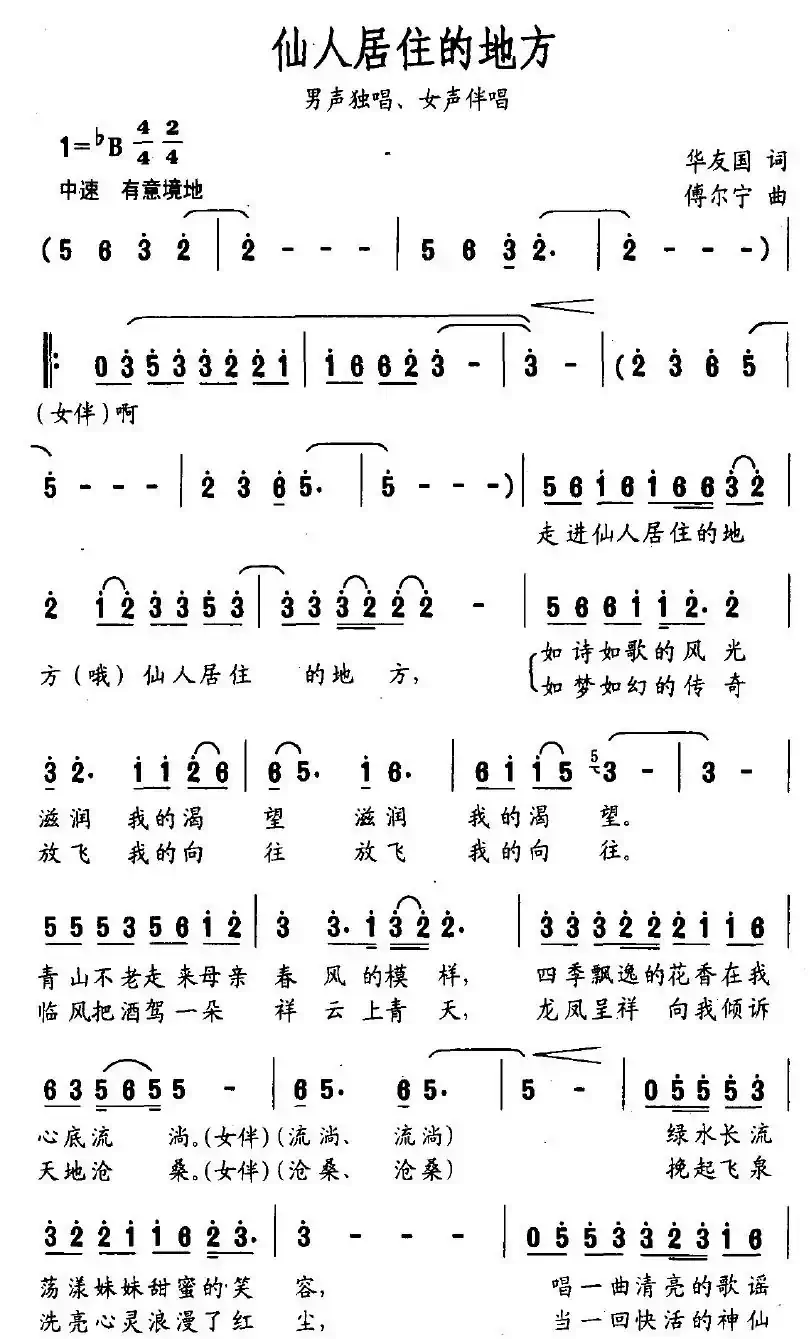 仙人居住的地方
男声独唱、女声伴唱
1=♭B 4/4 2/4
华友国 词
中速 有意境地
傅尔宁 曲
(5 6 3 2 | 2 - - - | 5 6 3 2. | 2 - - -) |
‖: 0 3 5 3 3 2 2 1 | 1 6 6 2 3 - | 3 - | (2 3 6 5 |
(女伴)啊
5 - - - | 2 3 6 5. | 5 - - -) | 5 6 1 6 1 6 6 3 2 |
走进仙人居住的地
2 1 2 3 3 5 3 | 3 3 3 2 2 2 - | 5 6 6 1 1 2. 2
方(哦)仙人居住 的地 方,
如诗如歌的风 光
如梦如幻的传 奇
3 2. 1 1 2 6 | 6 5. 1 6. | 6 1 1 5 5 3 - | 3 - |
滋润 我的渴 望 滋润 我的渴 望。
放飞 我的向 往 放飞 我的向 往。
5 5 5 3 5 6 1 2 | 3 3. 1 3 2 2. | 3 3 3 2 2 2 1 1 6
青山不老走来母亲 春 风 的模 样, 四季飘逸的花香在我
临风把酒驾一朵 祥 云 上青 天, 龙凤呈祥 向我倾诉
6 3 5 6 5 5 - | 6 5. 6 5. | 5 - | 0 5 5 5 3 |
心底流 淌。(女伴)(流淌、 流淌) 绿水长流
天地沧 桑。(女伴)(沧桑、 沧桑) 挽起飞泉
3 2 2 1 1 6 2 3. | 3 - - | 0 5 5 3 3 2 3 1 6
荡漾妹妹甜蜜的笑 容, 唱一曲清亮的歌谣
洗亮心灵浪漫了红 尘, 当一回快活的神仙